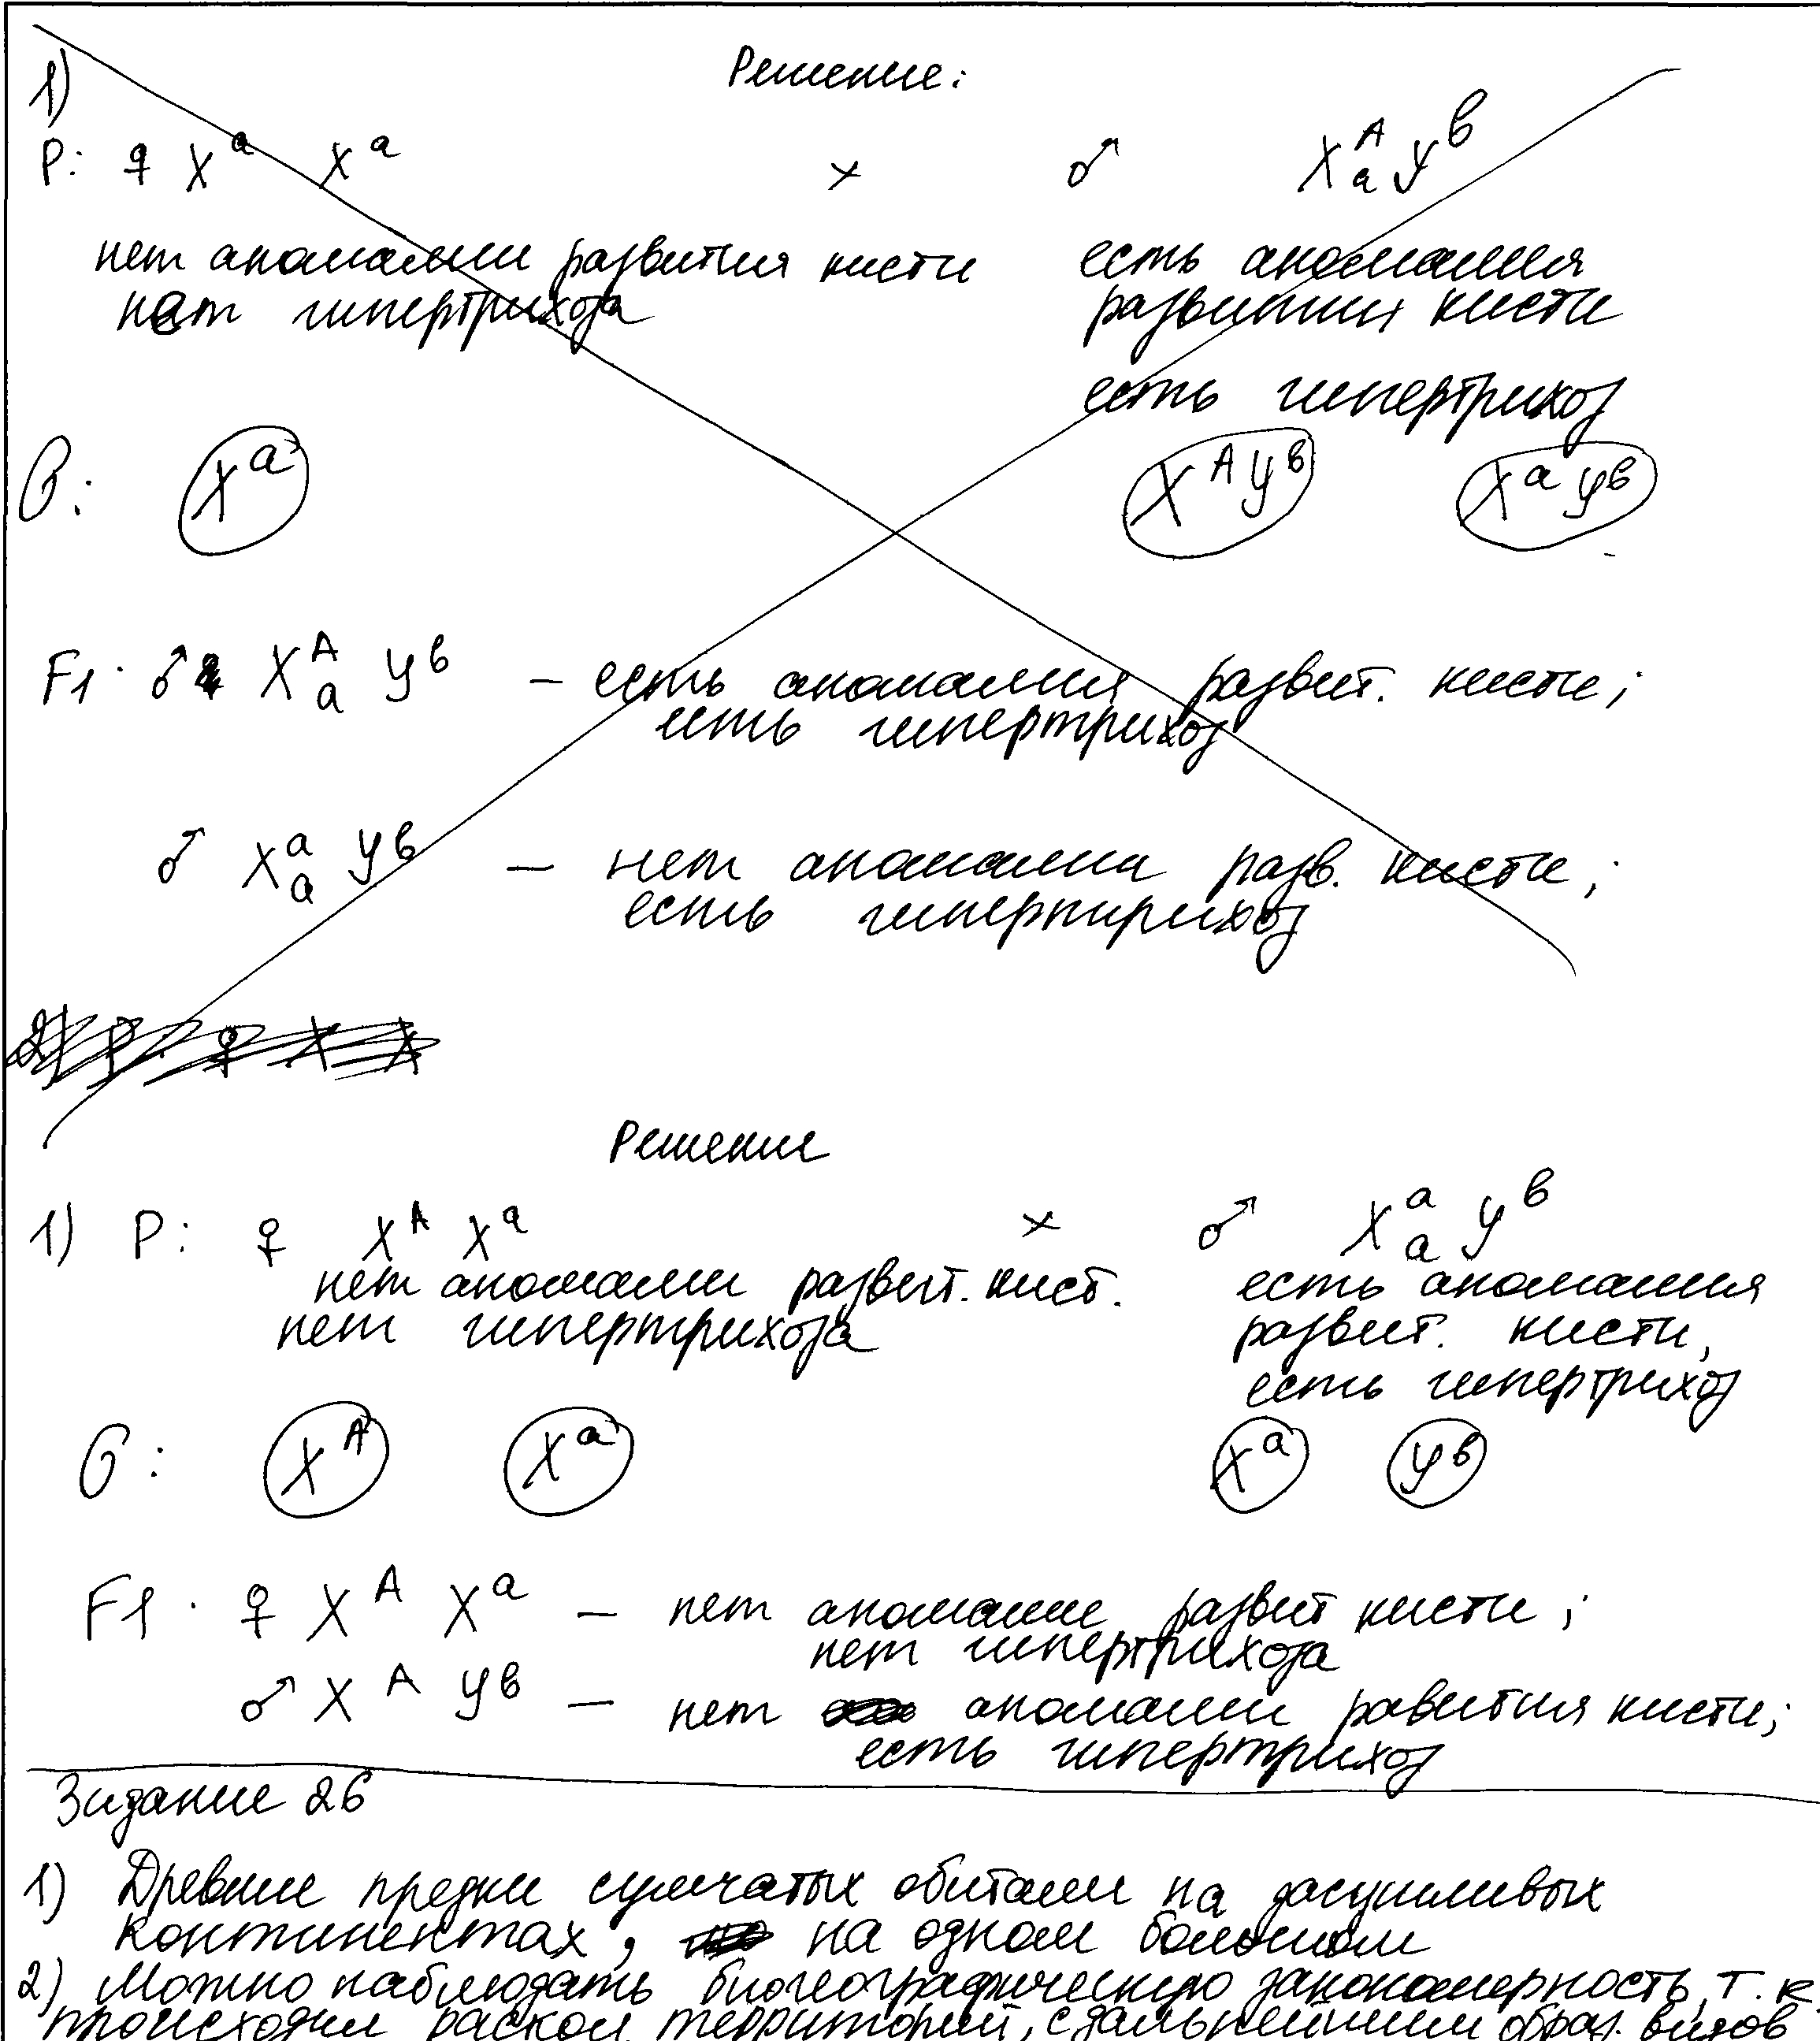 Решение:
1)
P: ♀ Xᵃ Xᵃ × ♂ Xᴬₐ Yᵇ
нет аномалии развития кисти есть аномалия
нет гипертрихоза развития кисти
есть гипертрихоз
G: Xᵃ XᴬYᵇ XᵃYᵇ
F1: ♂ Xᴬₐ Yᵇ – есть аномалия развит. кисти;
есть гипертрихоз
♂ Xᵃₐ Yᵇ – нет аномалии разв. кисти;
есть гипертрихоз
2) P: ♀ X X
Решение
1) P: ♀ Xᴬ Xᵃ × ♂ Xᵃₐ Yᵇ
нет аномалии развит. кист. есть аномалия
нет гипертрихоза развит. кисти,
есть гипертрихоз
G: Xᴬ Xᵃ Xᵃ Yᵇ
F1: ♀ Xᴬ Xᵃ – нет аномалии развит кисти;
нет гипертрихоза
♂ Xᴬ Yᵇ – нет аномалии равития кисти;
есть гипертрихоз
Зидание 26
1) Древние предки сумчатых обитали на засушливых
континентах, на одном большом
2) Можно наблюдать биогеографическую закономерность, т.к
происходил раскол территорий, с дальнейшим образ. видов